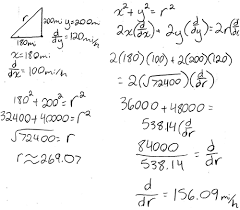 r
200mi y=200mi
d/dy = 120mi/h
180mi
x=180mi
d/dx = 100mi/h
180² + 200² = r²
32400 + 40000 = r²
√72400 = r
r ≈ 269.07
x² + y² = r²
2x(d/dx) + 2y(d/dy) = 2r(d/dr)
2(180)(100) + 2(200)(120)
= 2(√72400)(d/dr)
36000 + 48000 =
538.14(d/dr)
84000/538.14 = d/dr
d/dr = 156.09mi/h